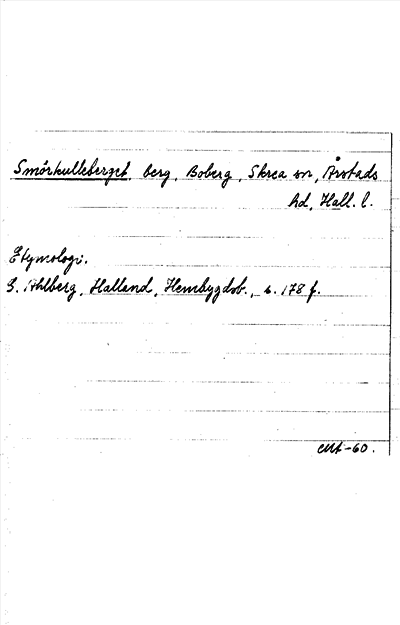 Smörkulleberget, berg, Boberg, Skrea sn, Årstads
hd, Hall. l.
Etymologi.
E. Ahlberg, Halland, Hembygdsb., s. 178 f.
-60.